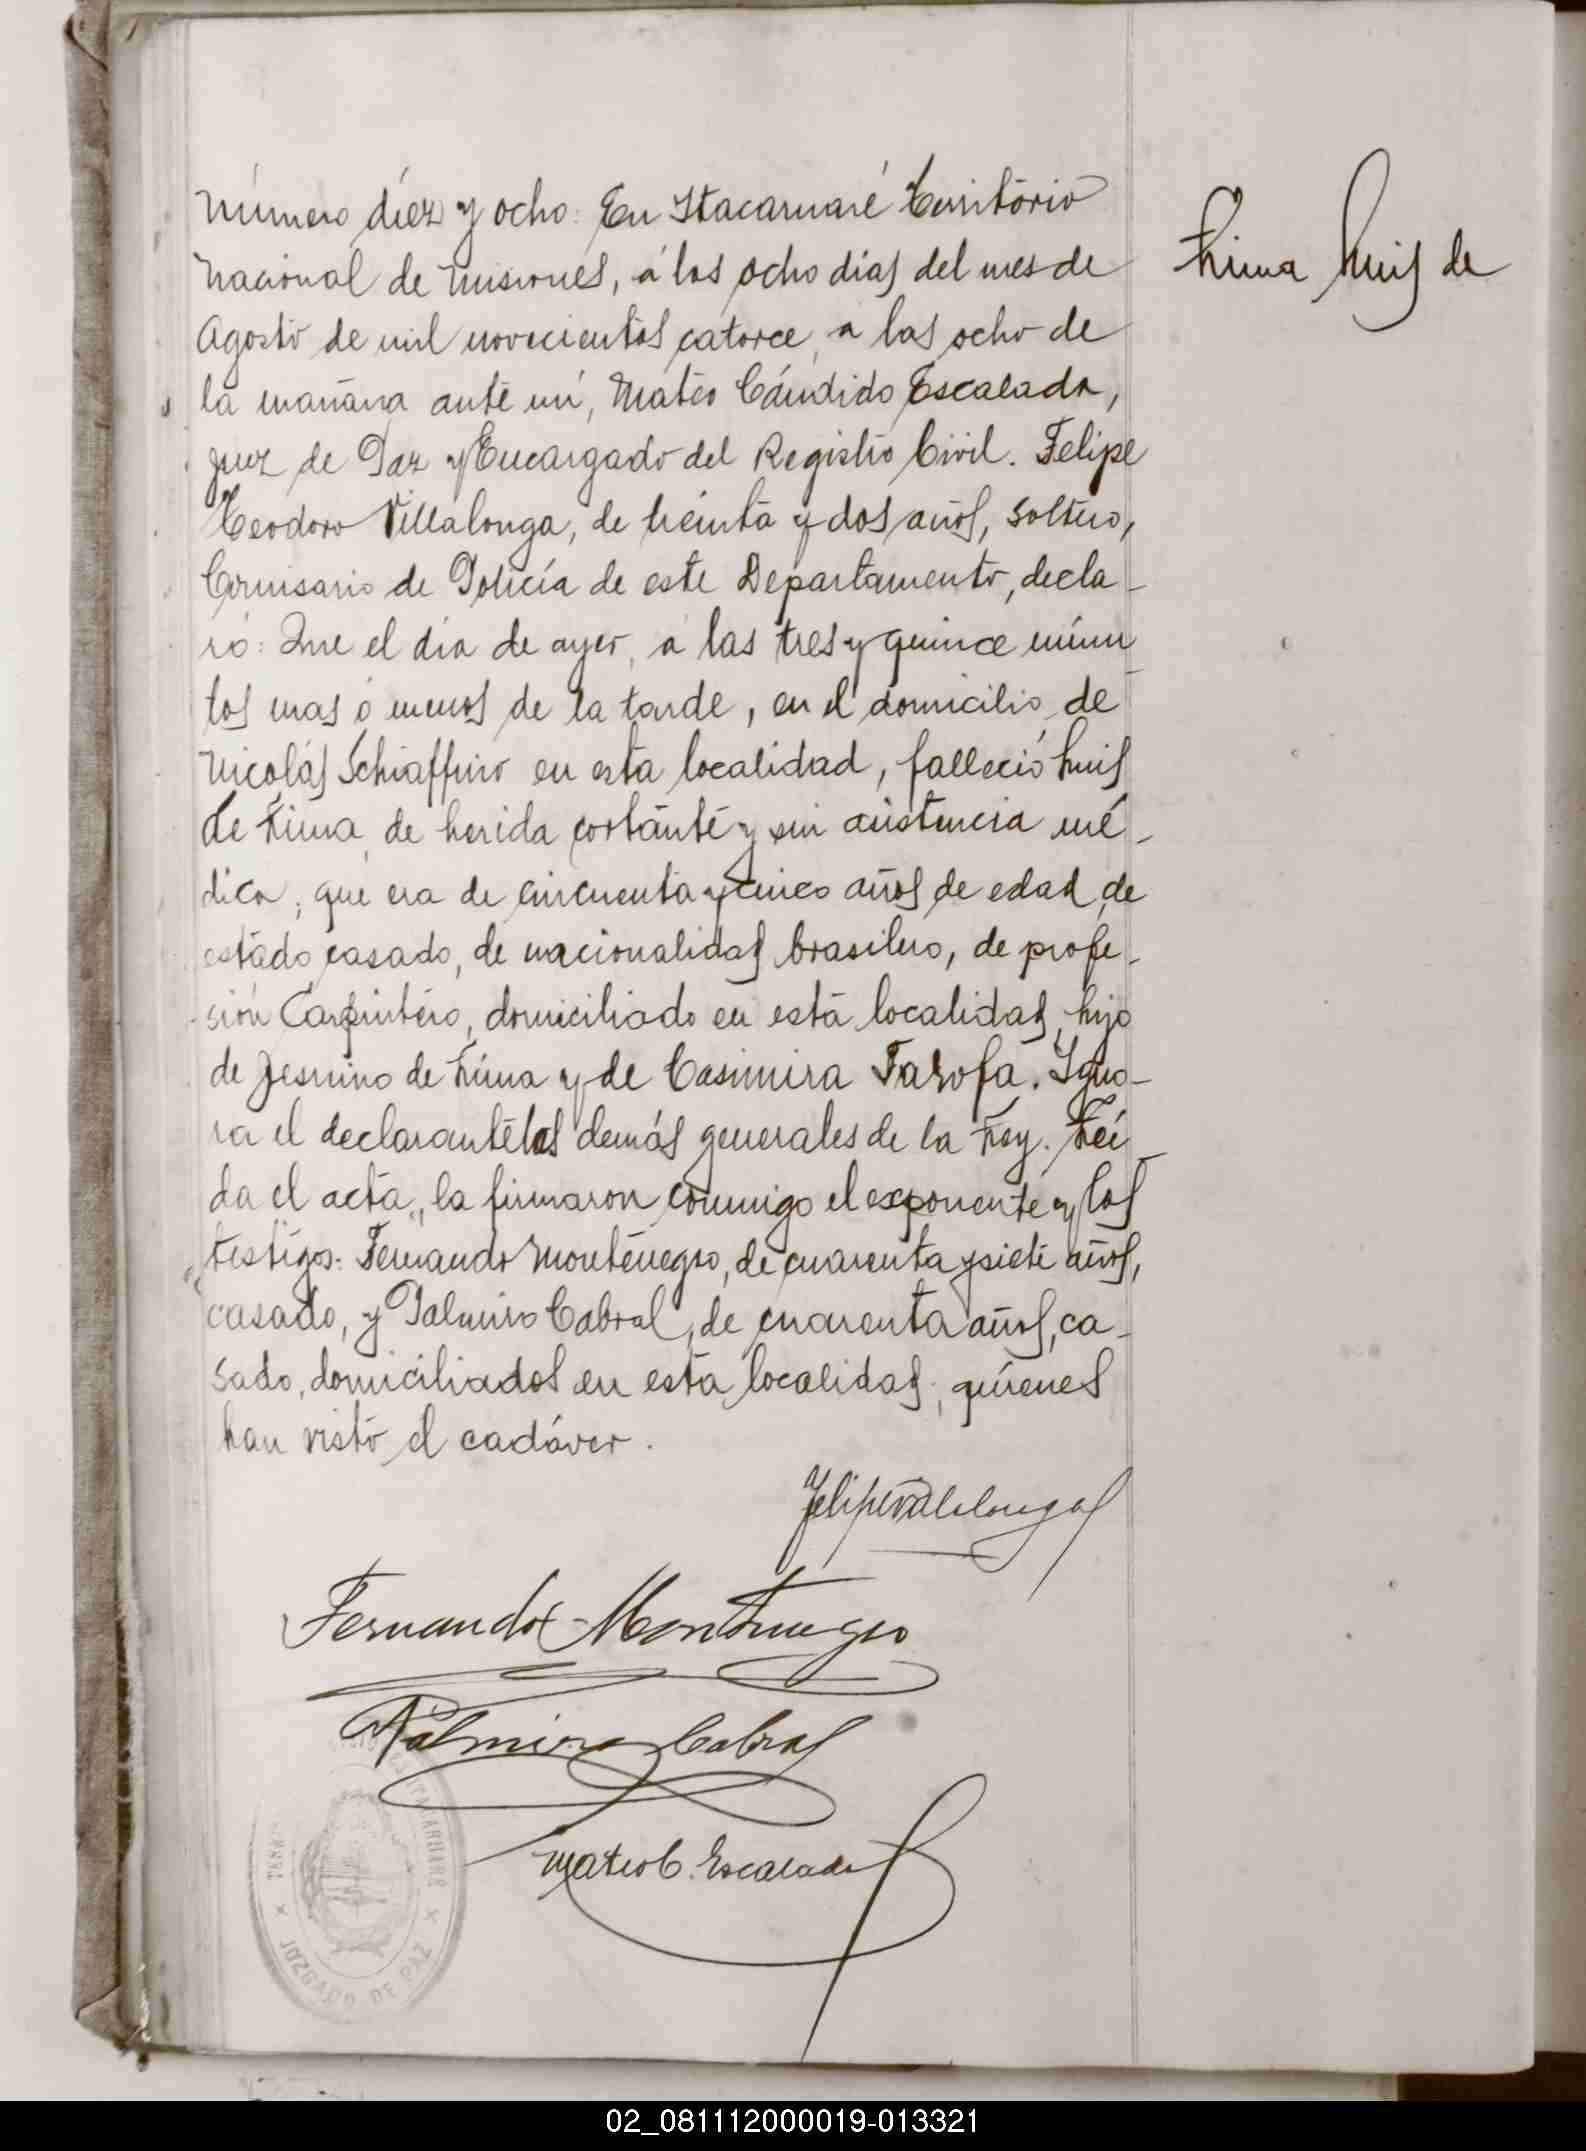 Número diez y ocho: En Itacaruaré Territorio
Nacional de Misiones, á los ocho dias del mes de
Agosto de mil novecientos catorce, a las ocho de
la mañana ante mí, Mateo Cándido Escalada,
Juez de Paz y Encargado del Registro Civil. Felipe
Teodoro Villalonga, de treinta y dos años, soltero,
Comisario de Policía de este Departamento, decla-
ró: Que el dia de ayer, á las tres y quince minu
tos mas ó menos de la tarde, en el domicilio de
Nicolás Schiaffino en esta localidad, falleció Luis
de Lima, de herida cortante y sin asistencia mé-
dica; que era de cincuenta y cinco años de edad, de
estado casado, de nacionalidad brasilero, de profe-
sión Carpintero, domiciliado en esta localidad, hijo
de Jesuino de Lima y de Casimira Farofa. Igno-
ra el declarante las demás generales de la Ley. Leí
da el acta, la firmaron conmigo el exponente y los
testigos: Fernando Montenegro, de cuarenta y siete años,
casado, y Palmiro Cabral, de cuarenta años, ca-
sado, domiciliados en esta localidad; quienes
han visto el cadáver.
Lima Luis de
Felipe Villalonga
Fernando Montenegro
Palmiro Cabral
Mateo C. Escalada
JUZGADO DE PAZ
02_081112000019-013321